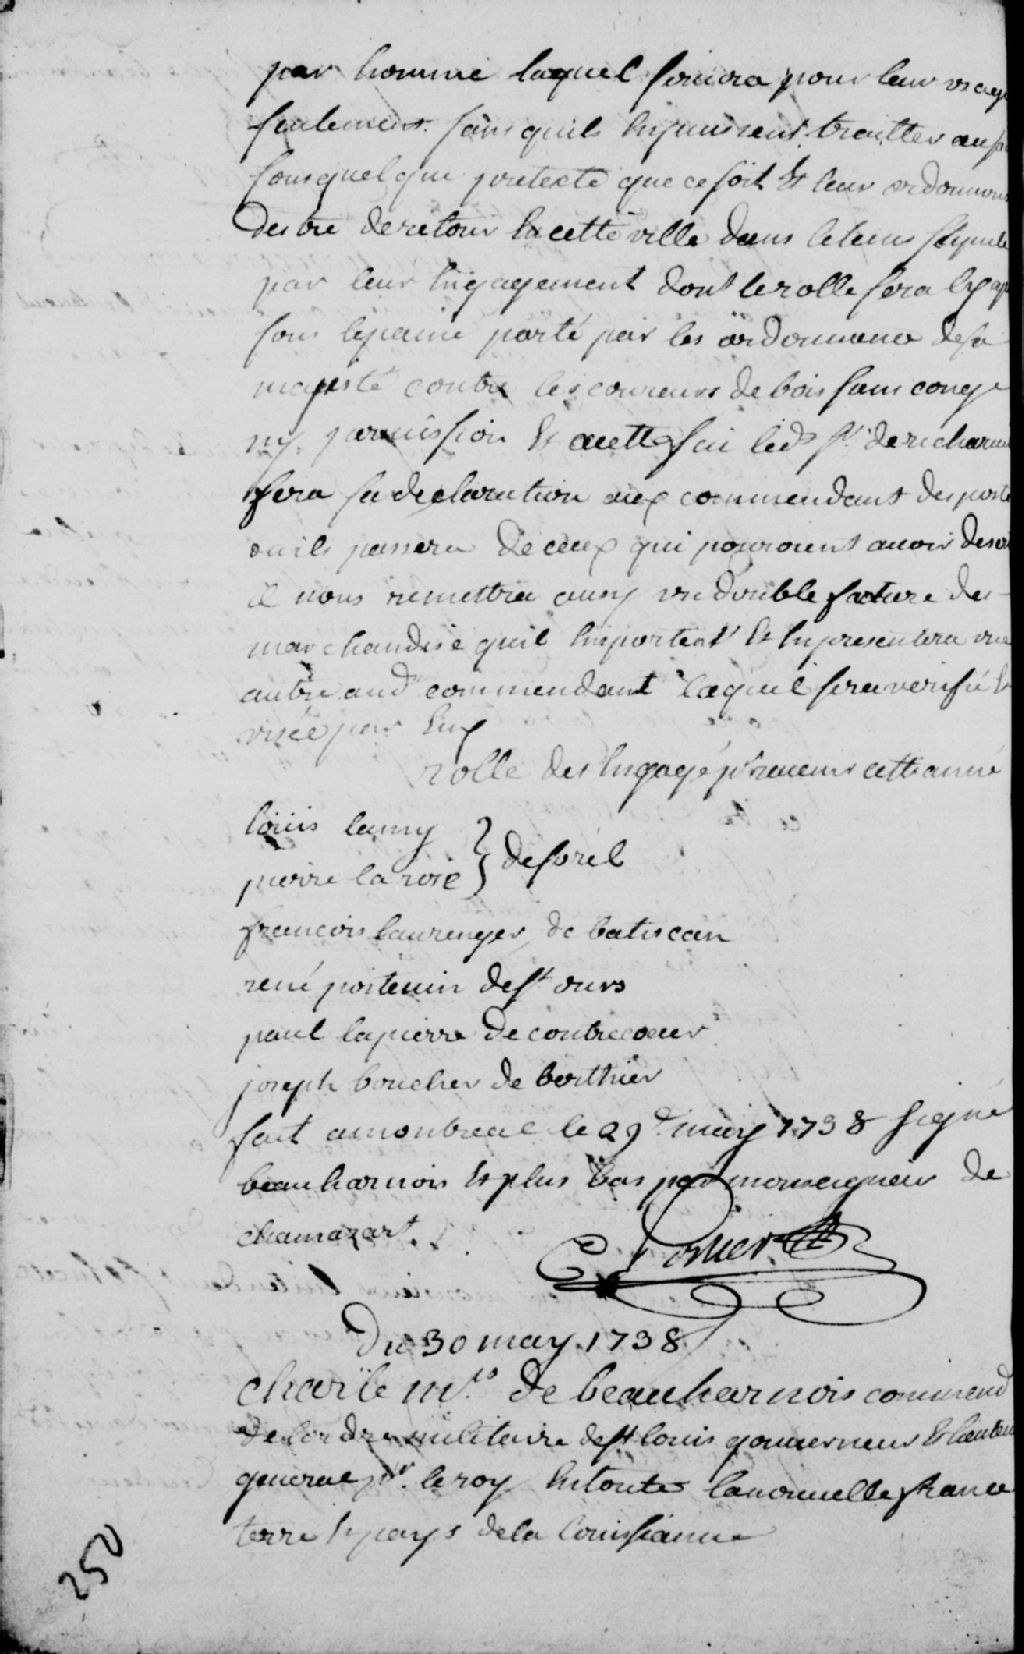 par homme laquel servira pour leur usage
seulement. sans quils en puissent traitter au
sous quelque pretexte que ce soit Et leur ordonnons
destre de retour En cette ville dans le tems stipulé
par leur Engagement dont le rolle sera Ey ap
sous lepaine porté par les ordonnance de sa
majesté contre les coureurs de bois sans congé
ny permission Et a cette fin led. sr. de richarvi
fera sa declaration aux commendant des poste
ou ils passera de ceux qui pouroient avoir deser
il nous remettra aussy un double facture des
marchandise quil Emportent Et En presentera une
autre aud commendant laquel sera verifié Et
visée par Eux
rolle des Engagé pr. revenir cette année
louis lamy
pierre la rose } de sorel
francois laurenger de batiscan
rené poitevin de st ours
paul lapierre de contrecoeur
joseph boucher de berthier
fait a montreal le 29e. may 1738 signé
beauharnois Et plus bas par monseigneur de
chamazart.
Porlier
Du 30 may 1738
Charle m.is de beauharnois commend
de lordre militaire de st louis gouverneur Et lieuten
general pr. le roy En toute la nouvelle france
terre Et pays de la Louissianne
250